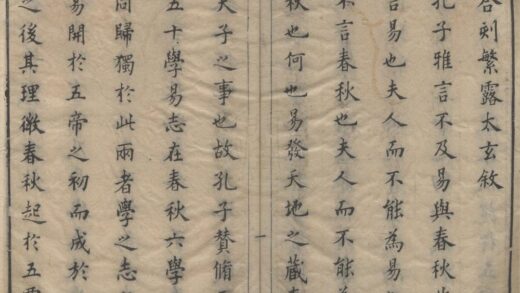 合刻繁露太玄敘
孔子雅言不及易與春秋
言易也夫人而不能為易
不言春秋也夫人而不能為
秋也何也易發天地之藏
一
夫子之事也故孔子贊脩
五十學易志在春秋六學
同歸獨於此兩者學之志
易開於五帝之初而成於
之後其理微春秋起於五